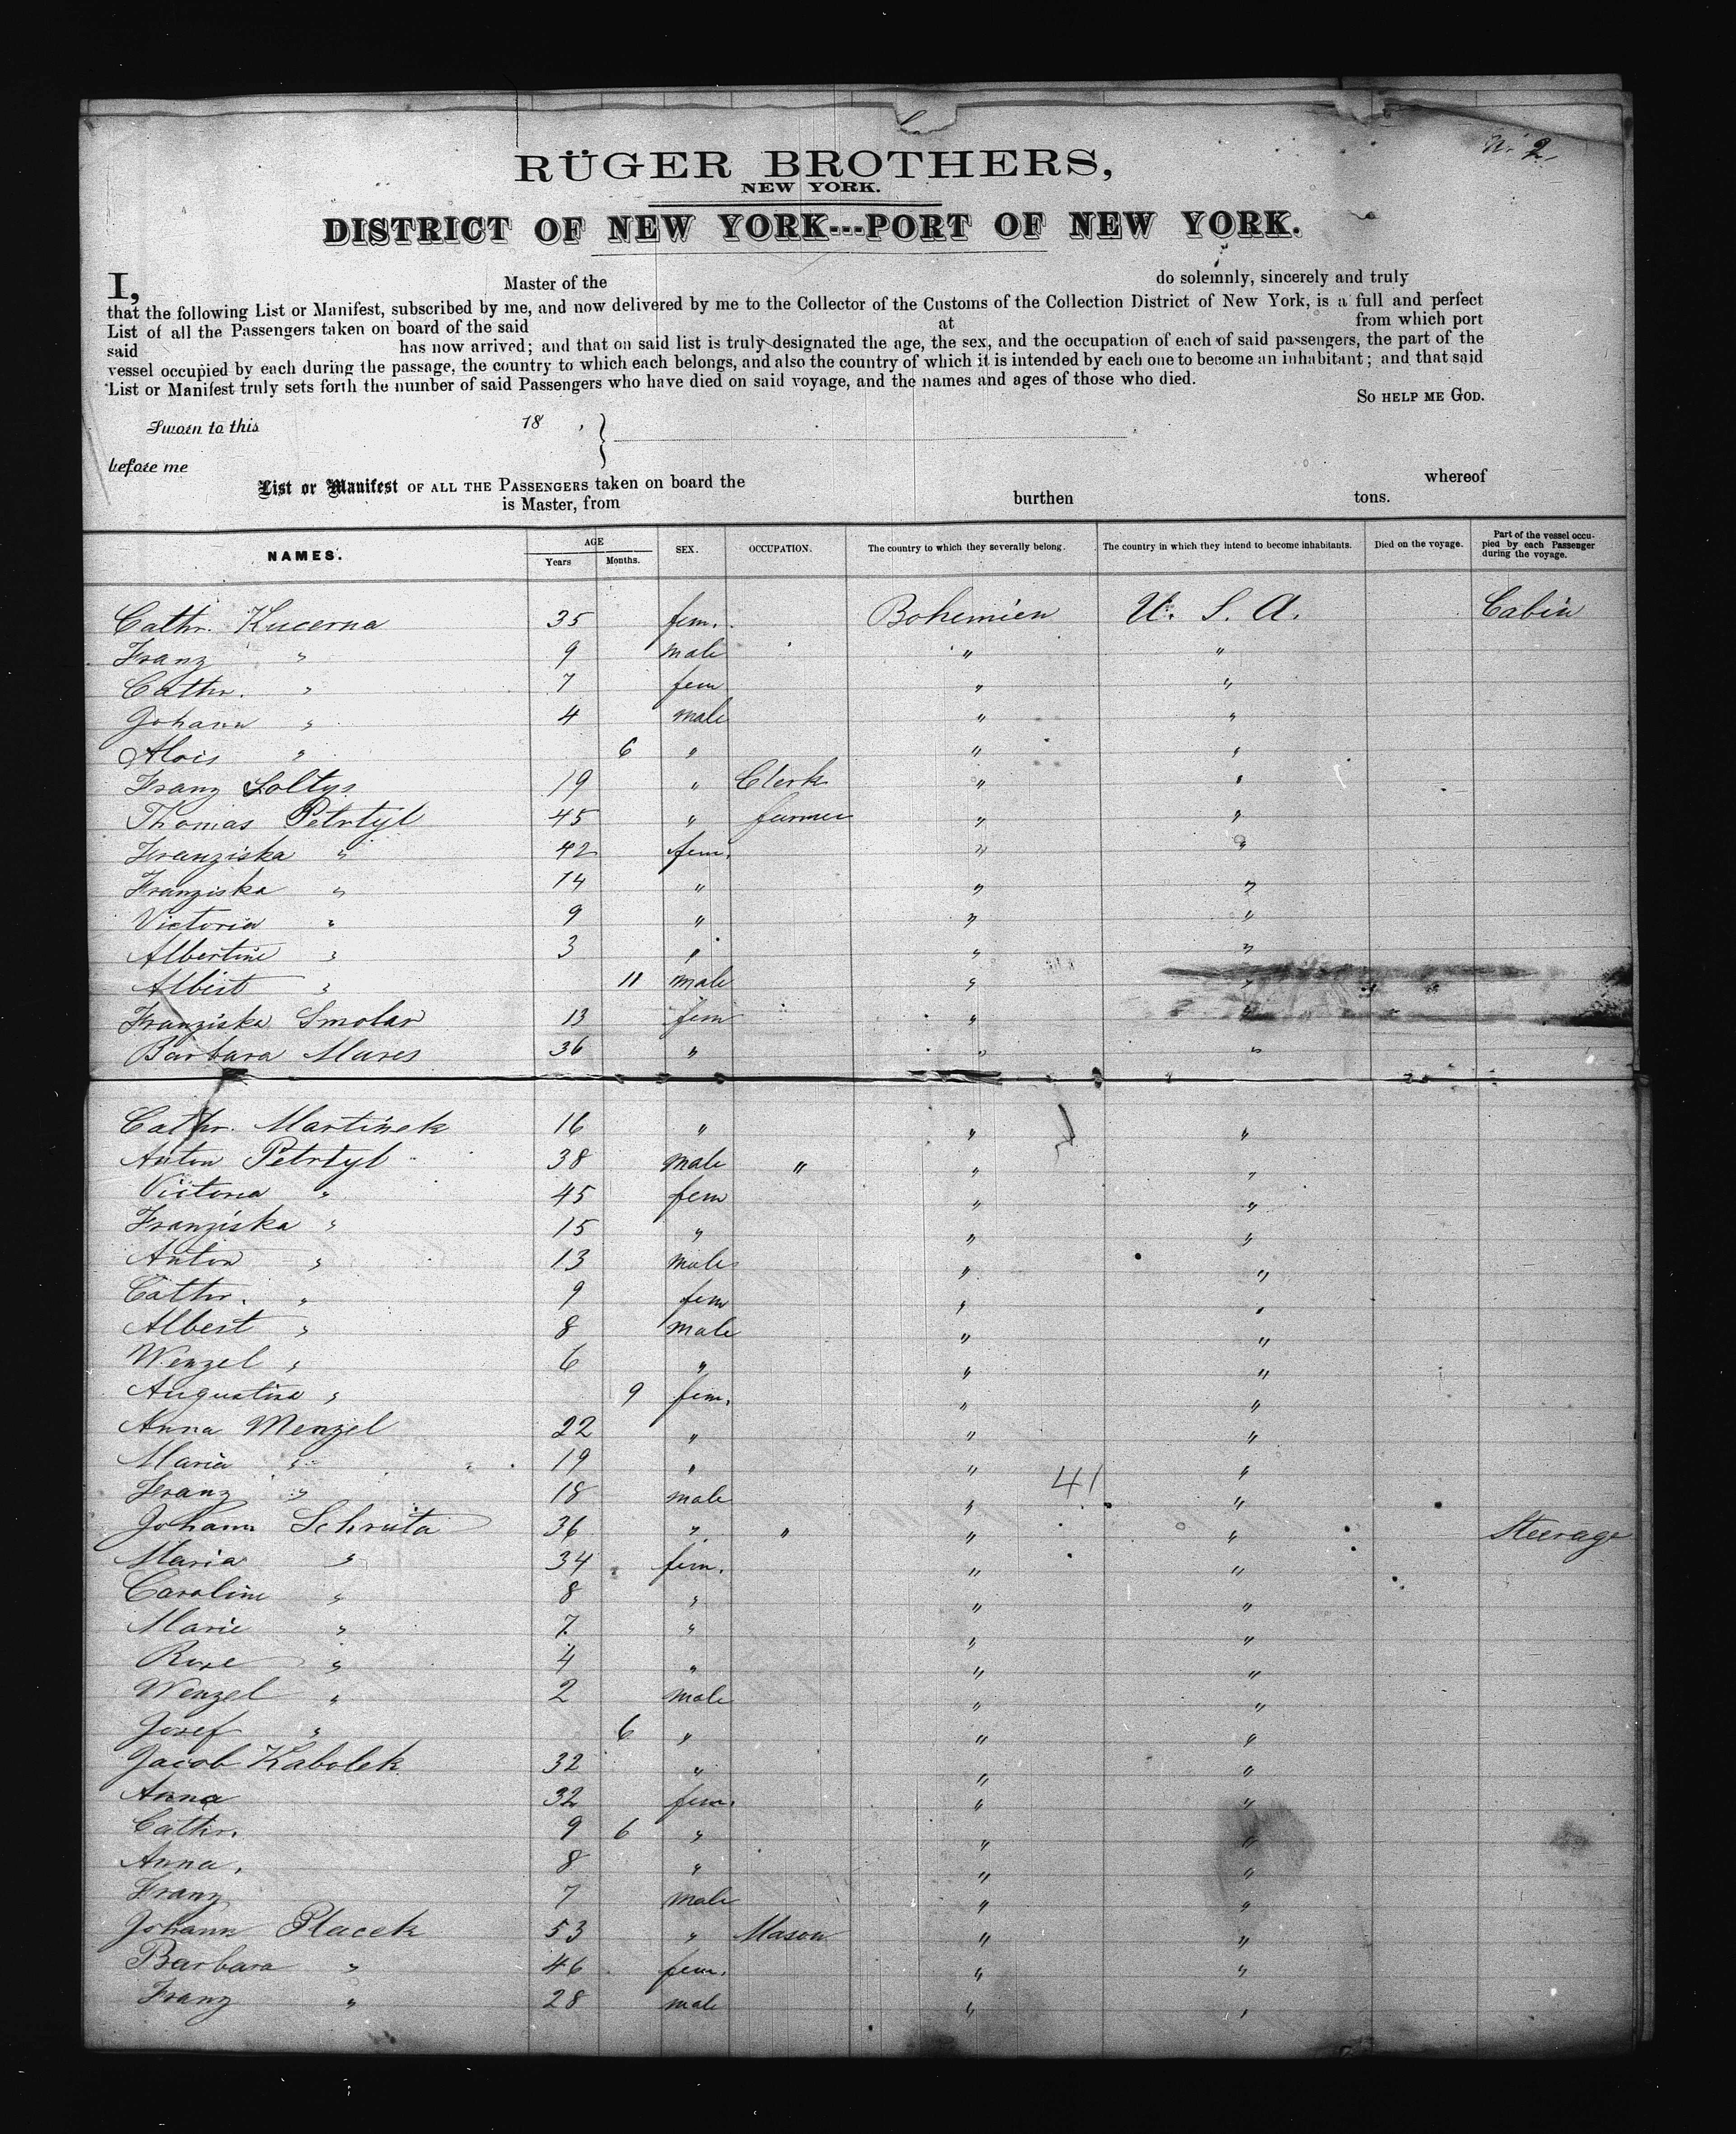 N. 2.
RÜGER BROTHERS,
NEW YORK.
DISTRICT OF NEW YORK---PORT OF NEW YORK.
I, Master of the do solemnly, sincerely and truly
that the following List or Manifest, subscribed by me, and now delivered by me to the Collector of the Customs of the Collection District of New York, is a full and perfect
List of all the Passengers taken on board of the said at from which port
said has now arrived; and that on said list is truly designated the age, the sex, and the occupation of each of said passengers, the part of the
vessel occupied by each during the passage, the country to which each belongs, and also the country of which it is intended by each one to become an inhabitant; and that said
List or Manifest truly sets forth the number of said Passengers who have died on said voyage, and the names and ages of those who died.
SO HELP ME GOD.
Sworn to this 18 , }
before me
List or Manifest OF ALL THE PASSENGERS taken on board the whereof
is Master, from burthen tons.
NAMES. AGE Years Months. SEX. OCCUPATION. The country to which they severally belong. The country in which they intend to become inhabitants. Died on the voyage. Part of the vessel occu-
pied by each Passenger
during the voyage.
Cathr. Kucerna 35 fem. Bohemien U. S. A. Cabin
Franz " 9 male " "
Cathr. " 7 fem " "
Johann " 4 male " "
Alois " 6 " " "
Franz Soltys 19 " Clerk " "
Thomas Petrtyl 45 " farmer " "
Franziska " 42 fem. " "
Franziska " 14 " " "
Victoria " 9 " " "
Albertine " 3 " " "
Albert " 11 male " "
Franziska Smolar 13 fem " "
Barbara Mares 36 " " "
Cathr. Martinek 16 " " "
Anton Petrtyl 38 male " " "
Victoria " 45 fem " "
Franziska " 15 " " "
Anton " 13 male " "
Cathr. " 9 fem " "
Albert " 8 male " "
Wenzel " 6 " " "
Augustine " 9 fem. " "
Anna Menzel 22 " " "
Maria " 19 " " "
Franz " 18 male " 41 "
Johann Schruta 36 " " " " Steerage
Maria " 34 fem. " "
Caroline " 8 " " "
Marie " 7 " " "
Rose " 4 " " "
Wenzel " 2 male " "
Josef " 6 " " "
Jacob Kabolek 32 " " "
Anna 32 fem. " "
Cathr. 9 6 " " "
Anna. 8 " " "
Franz 7 male " "
Johann Placek 53 " Mason " "
Barbara " 46 fem. " "
Franz " 28 male " "